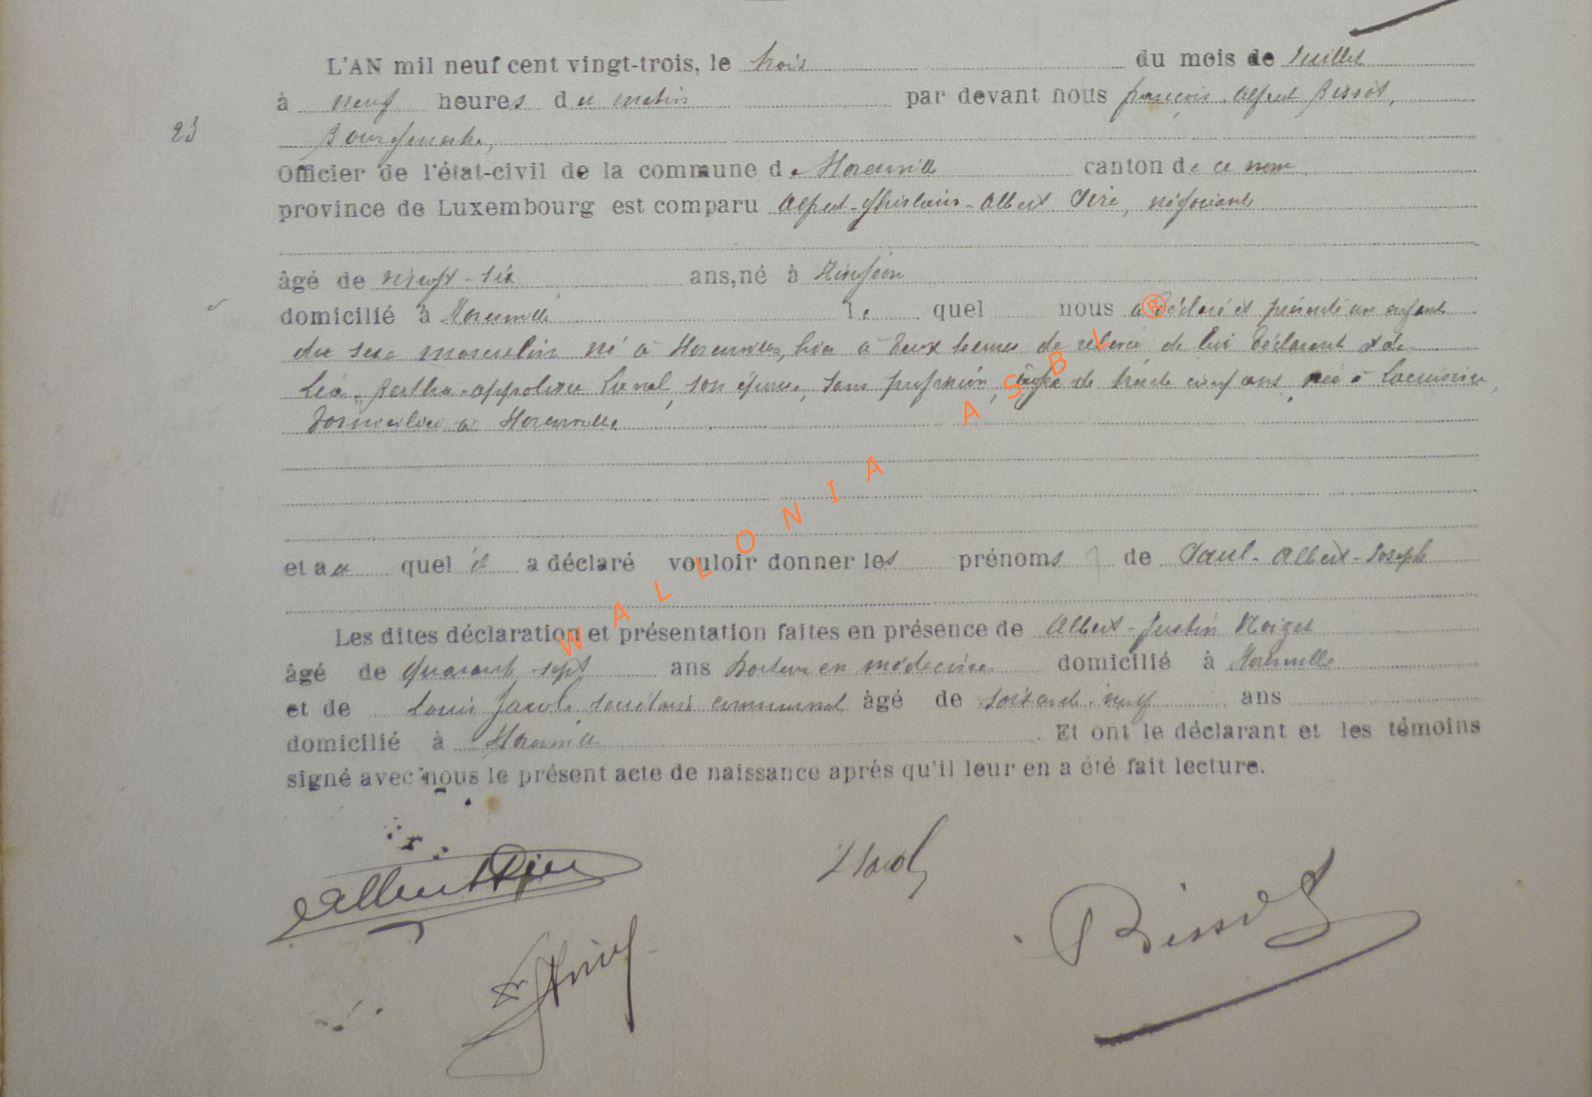 L'AN mil neuf cent vingt-trois, le trois du mois de Juillet
à neuf heures du matin par devant nous françois Alfred Bissot,
23
Bourgmestre,
Officier de l'état-civil de la commune de Florenville canton de ce nom
province de Luxembourg est comparu Alfred-Ghislain-Albert négociant
âgé de ans, né à
domicilié à Florenville le quel nous a déclaré et présenté un enfant
du sexe masculin né à Florenville, hier à deux heures de relevée, de lui déclarant et de
Léa son épouse, sans profession, âgée de trente cinq ans, née à Lacuisine,
domiciliée à Florenville
et au quel il a déclaré vouloir donner les prénoms de Paul-Albert-Joseph
Les dites déclaration et présentation faites en présence de Albert-Justin
âgé de quarante sept ans Docteur en médecine domicilié à Florenville
et de Louis Jacob, secrétaire communal âgé de soixante-neuf ans
domicilié à Florenville . Et ont le déclarant et les témoins
signé avec nous le présent acte de naissance après qu'il leur en a été fait lecture.
Bissot
WALLONIA ASBL ®